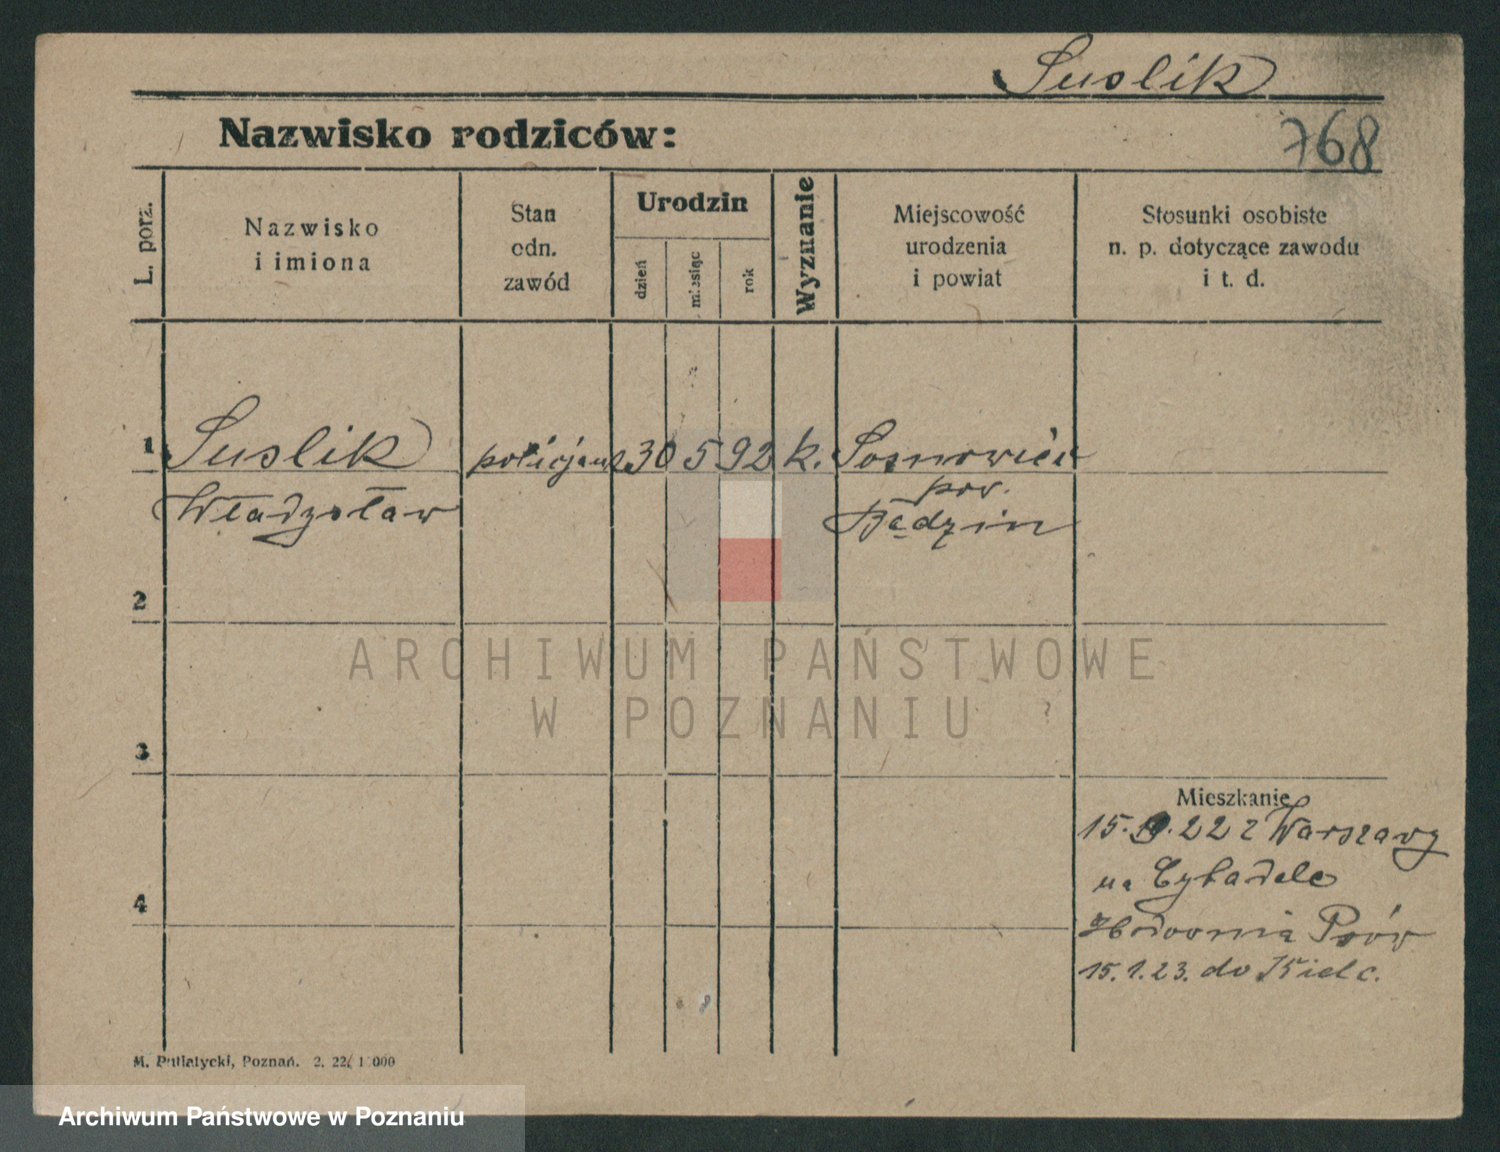 Suslik
Nazwisko rodziców:
768
L. porz.
Nazwisko
i imiona
Stan
odn.
zawód
Urodzin
dzień
miesiąc
rok
Wyznanie
Miejscowość
urodzenia
i powiat
Stosunki osobiste
n. p. dotyczące zawodu
i t. d.
1 Suslik policjant 30 5 92 k. Sosnowiec
Władysław
pow.
Będzin
2
3
4
Mieszkanie
15. 22 z Warszawy
na Cytadele
15.1.23. do Kielc.
M. Putiatycki, Poznań. 2. 22
ARCHIWUM PAŃSTWOWE
W POZNANIU
Archiwum Państwowe w Poznaniu